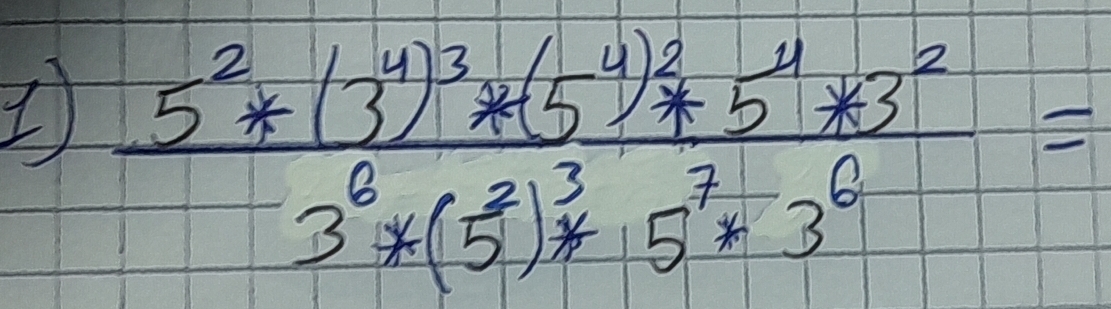 1) 5² * (3⁴)³ * (5⁴)² * 5⁴ * 3² =
3⁶ * (5²)³ * 5⁷ * 3⁶